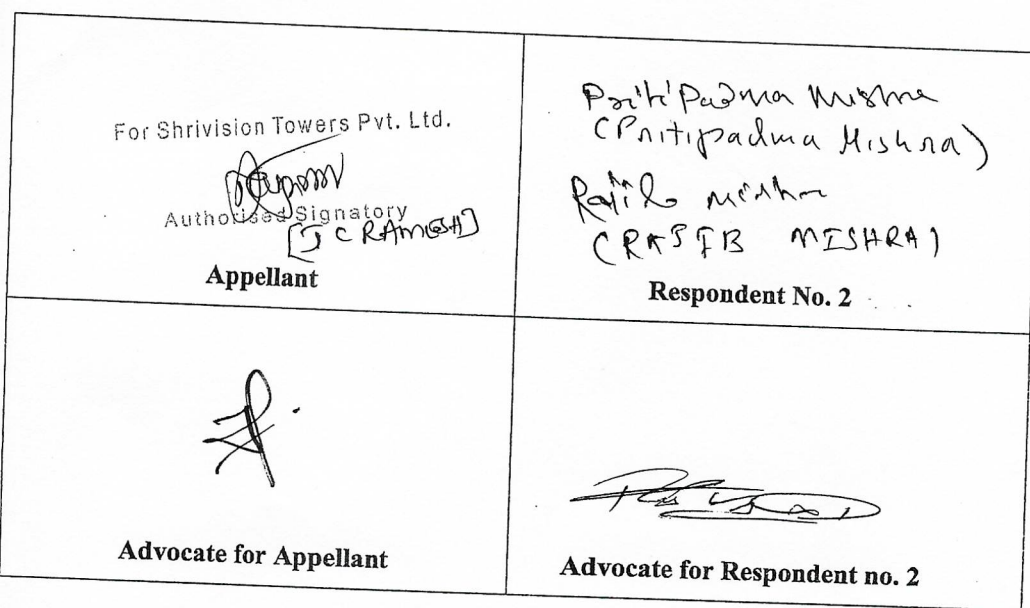 For Shrivision Towers Pvt. Ltd.
Authorised Signatory
[J C RAMESH]
Appellant
Pritipadma Mishra
(Pritipadma Mishra)
Rajib Mishra
(RAJIB MISHRA)
Respondent No. 2
Advocate for Appellant
Advocate for Respondent no. 2